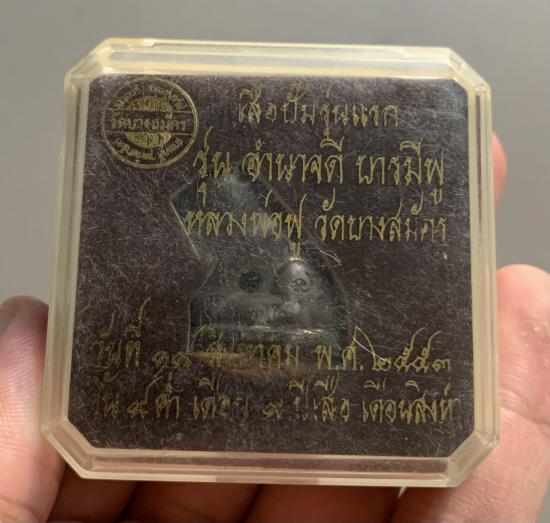 วัดบางสมัคร
เสือปั๊มรุ่นแรก
รุ่น อำนาจดี บารมีฟู
หลวงพ่อฟู วัดบางสมัคร
วันที่ สิงหาคม พ.ศ. ๒๕๕๓
ค่ำ เดือน ๙ ปีเสือ เดือนสิงห์